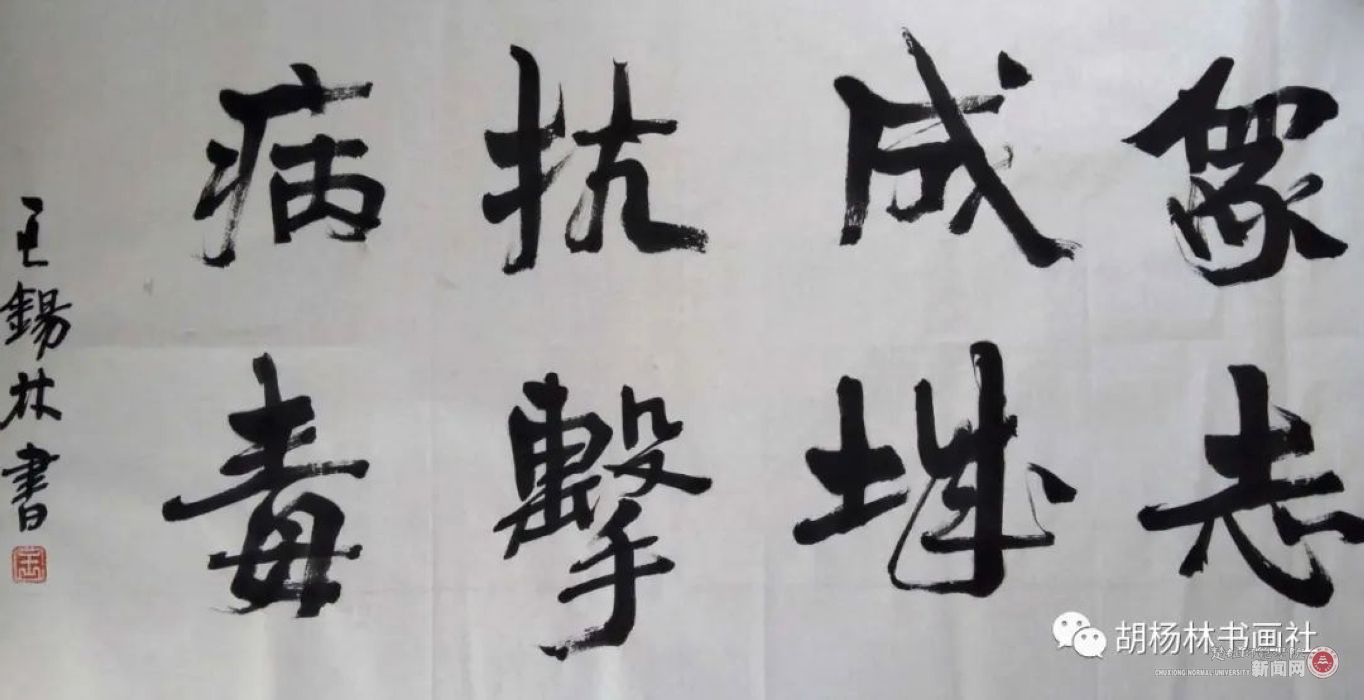 眾志
成城
抗擊
病毒
王錫林書
王
胡杨林书画社
新闻网
CHUXIONG NORMAL UNIVERSITY